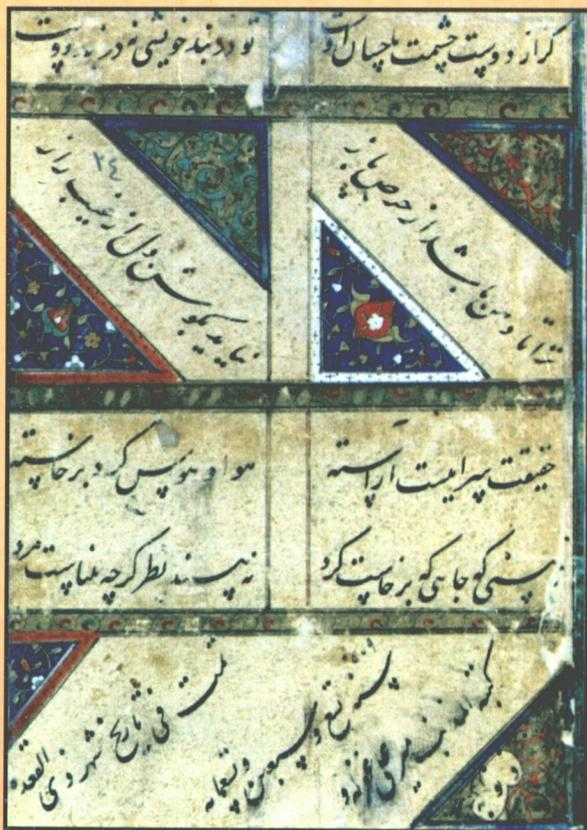 گر از دوست چشمت باحسان اوست
تو در بند خویشی نه در بند دوست
ترا تا دهن باشد از حرص باز
نیاید بگوش دل از غیب راز
٢٤
حقیقت سراییست آراسته
هوا و هوس گرد برخاسته
نبینی که جایی که برخاست گرد
نبیند نظر گرچه بیناست مرد
تمت فی تاریخ شهر ذی القعده
سنه تسع و سبعین و تسعمایه
کتبه